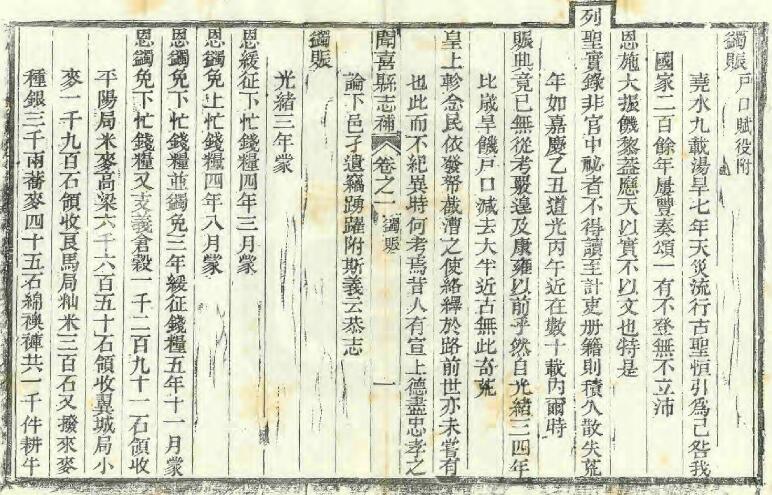 蠲賑戶口賦役附
堯水九載湯旱七年天災流行古聖恒引爲己咎我
國家二百餘年屢豐奏頌一有不登無不立沛
恩施大振饑黎蓋應天以實不以文也特是
列聖實錄非官中祕者不得讀至計吏册籍則積久散失荒
年如嘉慶乙丑道光丙午近在數十載內爾時
賑典竟已無從考覈遑及康雍以前乎然自光緒三四年
比歲旱饑戶口減去大半近古無此奇荒
皇上軫念民依發帑截漕之使絡繹於路前世亦未嘗有
也此而不紀異時何考焉昔人有宣上德盡忠孝之
聞喜縣志補 卷之一 蠲賑 一
論下邑孑遺竊踴躍附斯義云恭志
蠲賑
光緒三年蒙
恩緩征下忙錢糧四年三月蒙
恩蠲免上忙錢糧四年八月蒙
恩蠲免下忙錢糧並蠲免三年緩征錢糧五年十一月蒙
恩蠲免下忙錢糧又支義倉穀一千二百九十一石領收
平陽局米麥高梁六千六百五十石領收翼城局小
麥一千九百石領收良馬局籼米三百石又撥來麥
種銀三千兩蕎麥四十五石綿襖褲共一千件耕牛